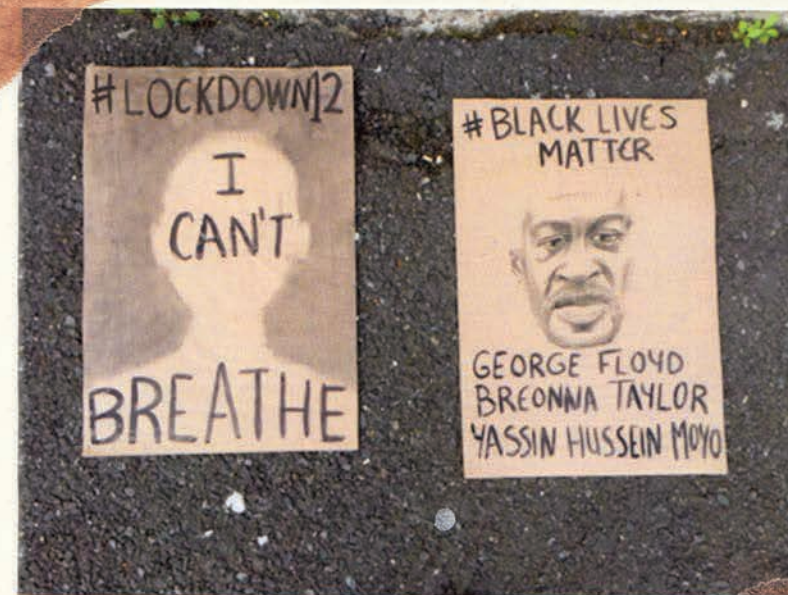 #LOCKDOWN12
I
CAN'T
BREATHE
#BLACK LIVES
MATTER
GEORGE FLOYD
BREONNA TAYLOR
YASSIN HUSSEIN MOYO